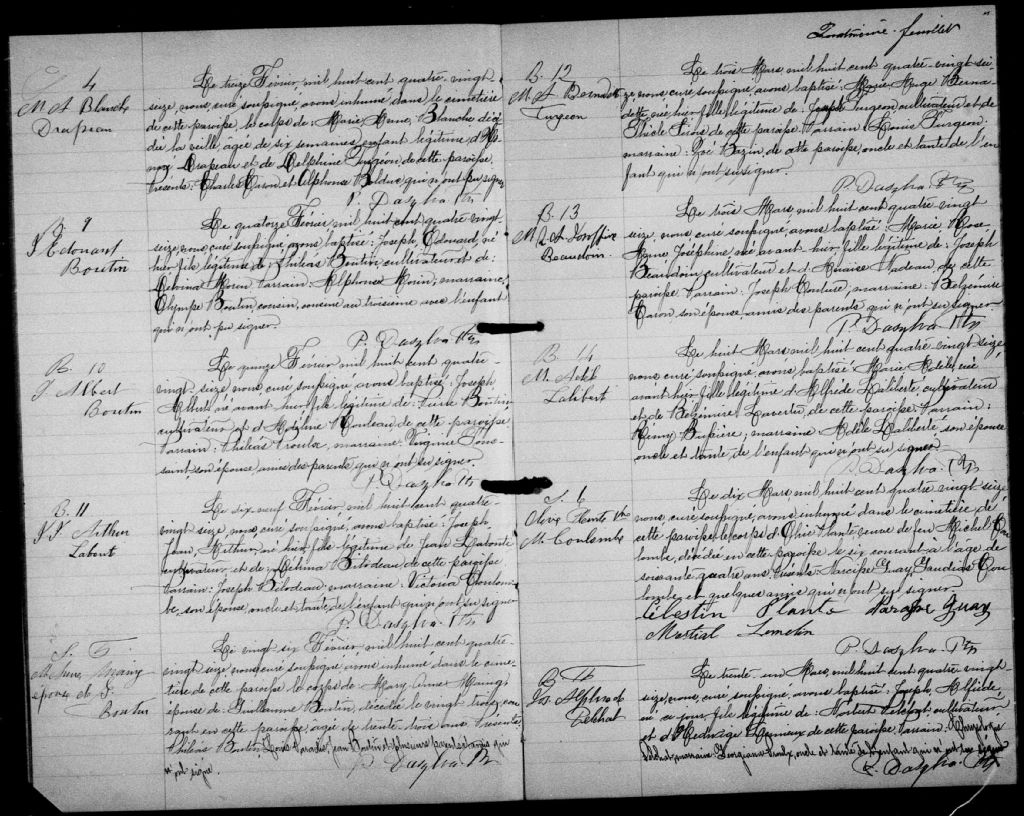 4
M A Blanche
Drapeau
Le treize Février, mil huit cent quatre-vingt
seize, nous, curé soussigné, avons inhumé dans le cimetière
de cette paroisse, le corps de Marie Anne, Blanche décé
dée la veille, agée de six semaines, enfant légitime d'
Drapeau et de Delphine Turgeon, de cette paroisse,
Présents: Charles Caron et Alphonse Bolduc, qui n'ont pu signer
P. Dasylva Ptr
B. 9
J Edouard
Boutin
Le quatorze Février mil huit cent quatre vingt
seize, nous curé soussigné, avons baptisé: Joseph, Edouard, né
hier, fils légitime de Philéas Boutin cultivateur et de
Morin. Parrain: Alphonse Morin; marraine,
Olympe Boutin, cousin, cousine au troisième avec l'enfant
qui n'ont pu signer.
P. Dasylva Ptr
B. 10
J. Albert
Boutin
Le quinze Février mil huit cent quatre-
vingt seize, nous curé soussigné, avons baptisé: Joseph
Albert, né avant hier, fils légitime de Pierre Boutin
cultivateur et d'Adeline Rouleau de cette paroisse
Parrain: Philéas Trouta, marraine: Virginie Pous-
saint, son épouse amis des parents qui n'ont su signer.
P. Dasylva Ptr
B. 11
J J Arthur
Labonté
Le dix neuf Février, mil huit cent quatre-
vingt seize, nous, curé soussigné, avons baptisé: Joseph,
Jean, Arthur, né hier, fils légitime de Jean Labonté
cultivateur, et de Bilodeau de cette paroisse,
Parrain: Joseph Bilodeau; marraine: Victoria Coulom-
be, son épouse, oncle et tante de l'enfant qui n'ont su signer
P. Dasylva Ptr
S. 5
M Anne Maing
épouse de G.
Boutin
Le vingt six Février, mil huit cent quatre-
vingt seize, nous curé soussigné avons inhumé dans le cime-
tière de cette paroisse le corps de Mary Anne Maing
épouse de Guillaume Boutin, décédée le vingt trois cou
rant en cette paroisse, agée de trente trois ans Présents,
Philéas Boutin, Louis Paradis, Jean Boutin et plusieurs parents et amis qui
n'ont signé.
P. Dasylva Ptr
Quatrième feuillet
B. 12
M. A Bernadette
Turgeon
Le trois Mars, mil huit cent quatre-vingt sei
ze, nous curé soussigné, avons baptisé: Marie Ange Berna
dette, née hier, fille légitime de Joseph Turgeon cultivateur et de
de cette paroisse Parrain: Louis Turgeon:
marraine: Zoé Bazin, de cette paroisse, oncle et tante de l'en
fant qui n'ont su signer.
P. Dasylva Ptr
B. 13
M R A Joséphine
Beaudoin
Le trois Mars, mil huit cent quatre vingt
seize, nous curé soussigné, avons baptisé: Marie Rose
Anna Joséphine née avant hier, fille légitime de: Joseph
Beaudoin cultivateur et d' Nadeau, de cette
paroisse. Parrain: Joseph Couture; marraine: Belzémire
Caron son épouse amis des parents qui n'ont su signer
P. Dasylva Ptr
B. 14
M. Adèle
Laliberté
Le huit Mars, mil huit cent quatre vingt seize
nous, curé soussigné, avons baptisé Marie Adèle, née
avant hier, fille légitime d'Alfrède Laliberté, cultivateur
et de Belzémire Laverdn, de cette paroisse. Parrain:
Rémy Bussière; marraine Adèle Laliberté son épouse
oncle et tante, de l'enfant qui n'ont su signer.
P. Dasylva Ptr
S. 6
Olive Plante Vve
M. Coulombe
Le dix Mars, mil huit cent quatre vingt seize
nous, curé soussigné, avons inhumé dans le cimetière de
cette paroisse le corps d'Olive Plante veuve de feu Michel Cou
lombe, décédée en cette paroisse le six courant à l'âge de
soixante quatre ans. Présents: Narcisse Guay, Gaudias Cou
lombe et quelques amis qui n'ont su signer
Célestin Plante Narcisse Guay
Martial Lemelin
P. Dasylva Ptr
B. 15
Jos. Alphrède
Pelchat
Le trente-un Mars, mil huit cent quatre vingt-
seize, nous, curé soussigné, avons baptisé: Joseph, Alfrède,
né ce jour, fils légitime de: Norbert Pelchat cultivateur
et d'Hedwidge de cette paroisse, Parrain:
Pelchat, marraine: Georgiana oncle et tante de l'enfant qui n'ont su signer
P. Dasylva Ptr